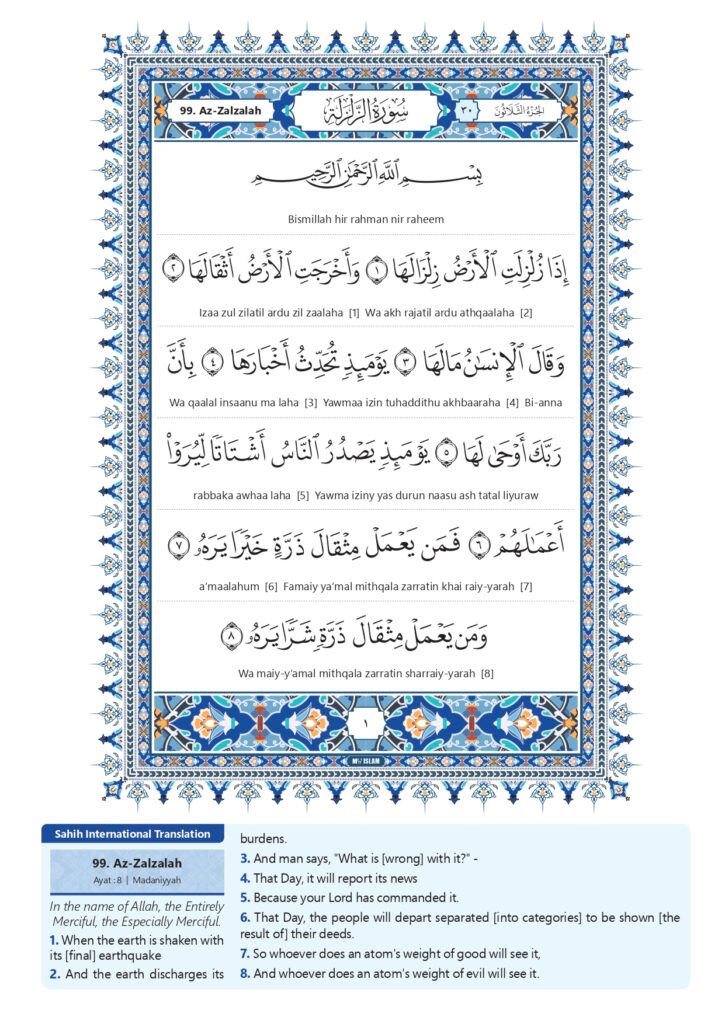 99. Az-Zalzalah
سُورَةُ الزَّلْزَلَةِ
٣٠
الجُزْءُ الثَّلَاثُونَ
بِسْمِ ٱللَّهِ ٱلرَّحْمَٰنِ ٱلرَّحِيمِ
Bismillah hir rahman nir raheem
إِذَا زُلْزِلَتِ ٱلْأَرْضُ زِلْزَالَهَا ١ وَأَخْرَجَتِ ٱلْأَرْضُ أَثْقَالَهَا ٢
Izaa zul zilatil ardu zil zaalaha [1] Wa akh rajatil ardu athqaalaha [2]
وَقَالَ ٱلْإِنسَٰنُ مَا لَهَا ٣ يَوْمَئِذٍ تُحَدِّثُ أَخْبَارَهَا ٤ بِأَنَّ
Wa qaalal insaanu ma laha [3] Yawmaa izin tuhaddithu akhbaaraha [4] Bi-anna
رَبَّكَ أَوْحَىٰ لَهَا ٥ يَوْمَئِذٍ يَصْدُرُ ٱلنَّاسُ أَشْتَاتًا لِّيُرَوْا۟
rabbaka awhaa laha [5] Yawma iziny yas durun naasu ash tatal liyuraw
أَعْمَٰلَهُمْ ٦ فَمَن يَعْمَلْ مِثْقَالَ ذَرَّةٍ خَيْرًا يَرَهُۥ ٧
a’maalahum [6] Famaiy ya’mal mithqala zarratin khai raiy-yarah [7]
وَمَن يَعْمَلْ مِثْقَالَ ذَرَّةٍ شَرًّا يَرَهُۥ ٨
Wa maiy-y’amal mithqala zarratin sharraiy-yarah [8]
١
MY ISLAM
Sahih International Translation
99. Az-Zalzalah
Ayat : 8 | Madaniyyah
In the name of Allah, the Entirely
Merciful, the Especially Merciful.
1. When the earth is shaken with
its [final] earthquake
2. And the earth discharges its
burdens.
3. And man says, "What is [wrong] with it?" -
4. That Day, it will report its news
5. Because your Lord has commanded it.
6. That Day, the people will depart separated [into categories] to be shown [the
result of] their deeds.
7. So whoever does an atom's weight of good will see it,
8. And whoever does an atom's weight of evil will see it.